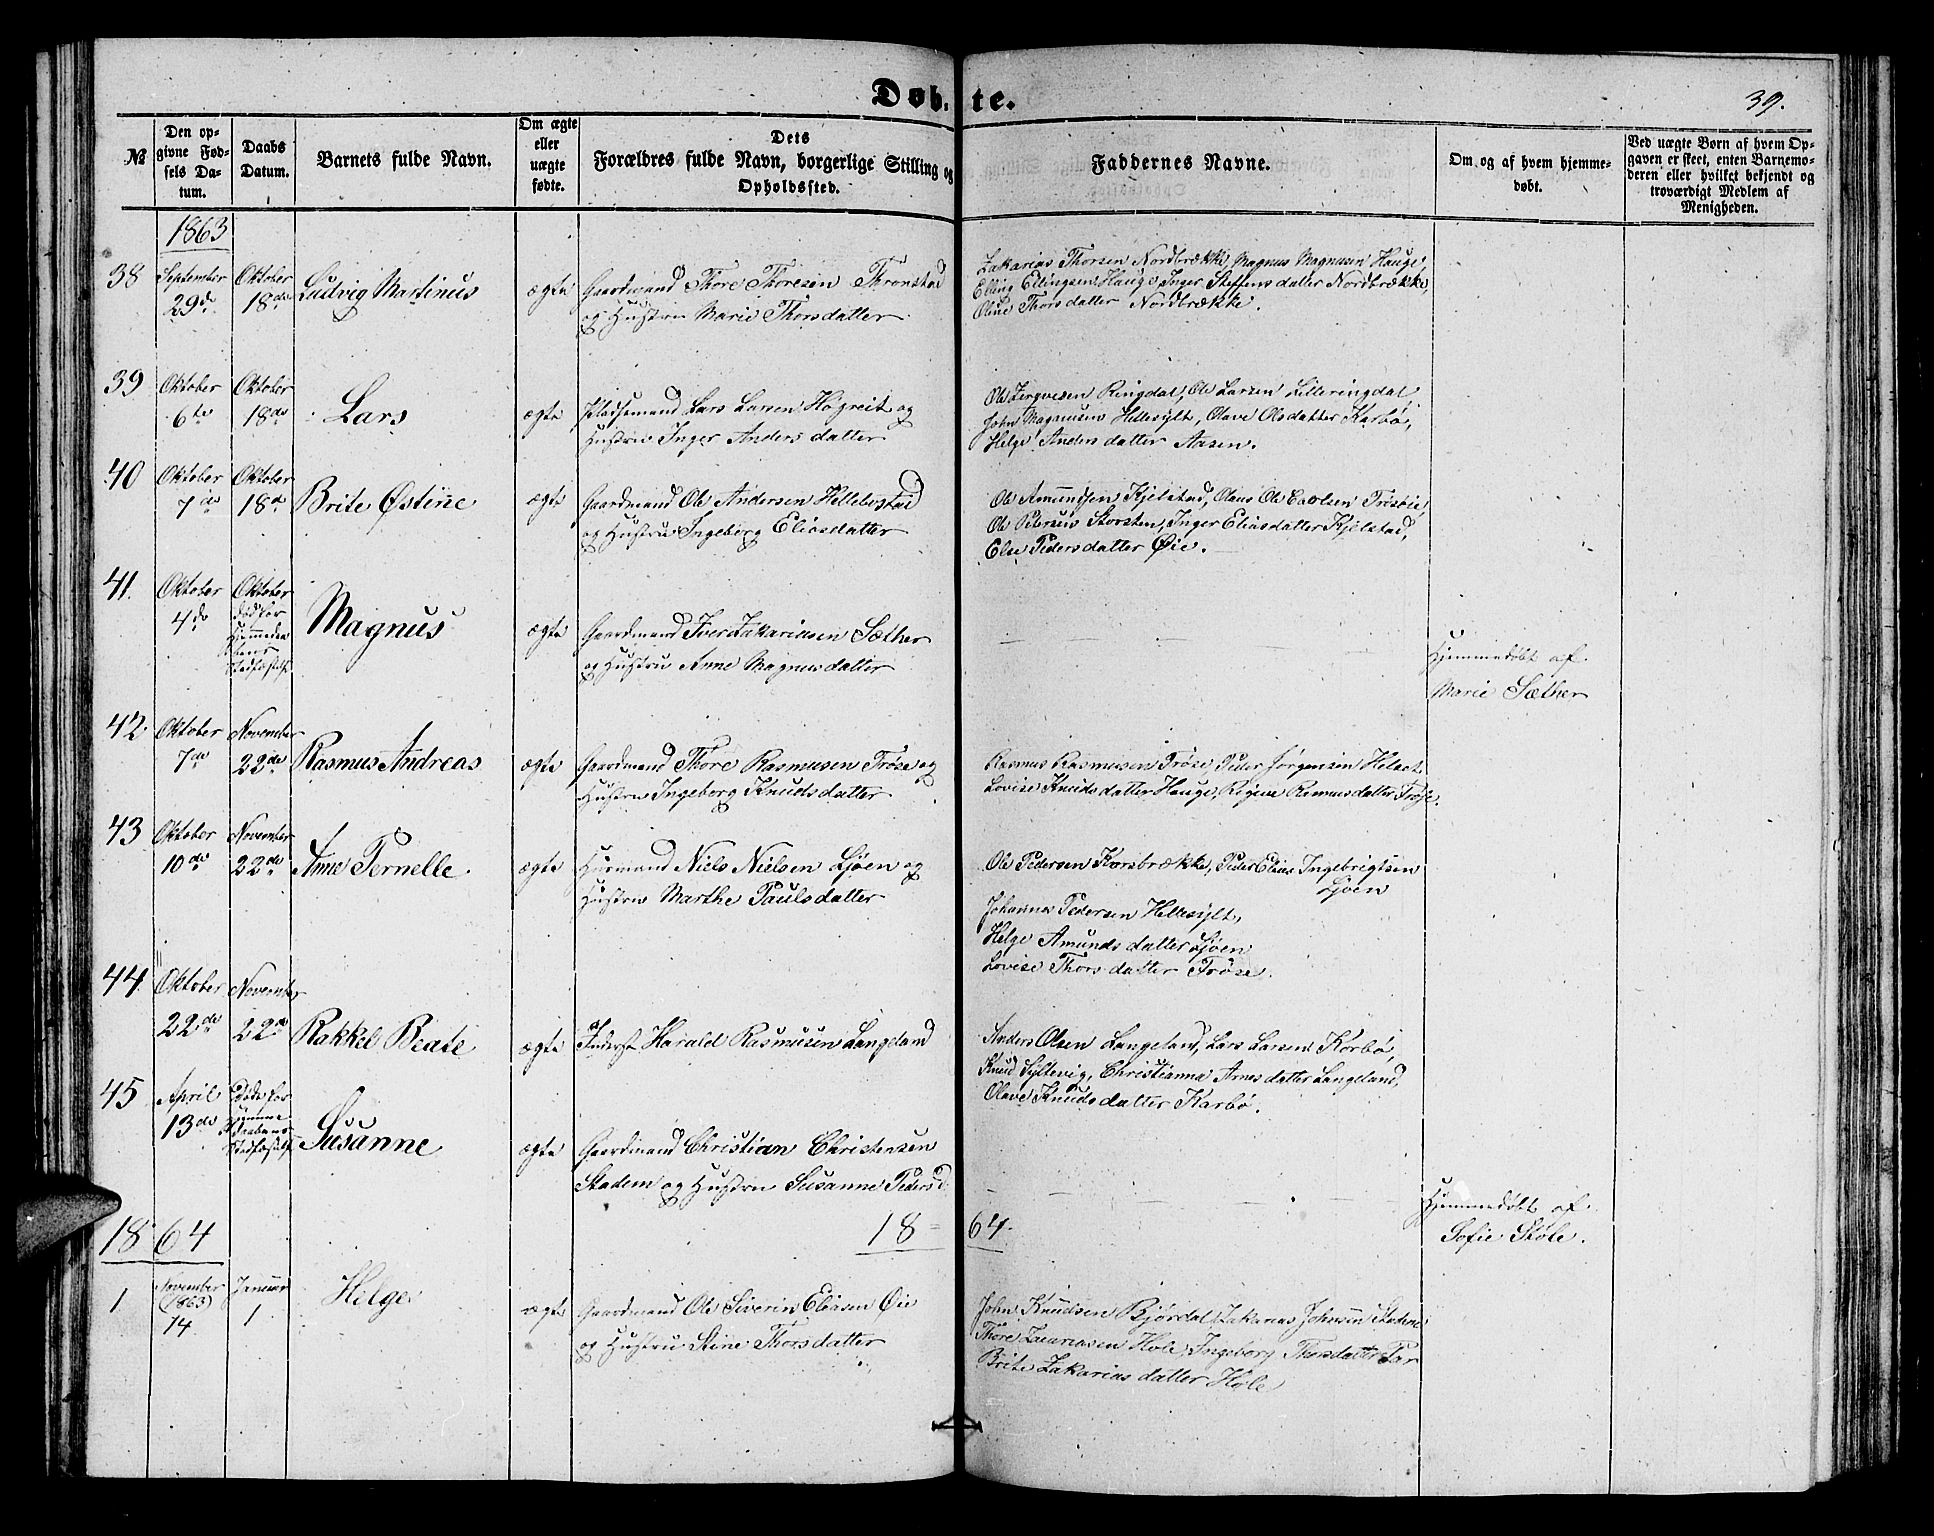 Døb- te.
39.
№
Den op-
givne Fød-
sels Da-
tum.
Daabs
Datum.
Barnets fulde Navn.
Om ægte
eller
uægte
fødte.
Dets
Forældres fulde Navn, borgerlige Stilling og
Opholdssted.
Faddernes Navne.
Om og af hvem hjemme-
døbt.
Ved uægte Børn af hvem Op-
gaven er skeet, enten Barnemo-
deren eller hvilket bekjendt og
troværdigt Medlem af
Menigheden.
1863
38 September 29de Oktober 18de Ludvig Martinus ægte
Gaardmand Thore Thoresen Thronstad
og Hustru Marie Thorsdatter
Zakarias Thorsen Nordbrække, Magnus Magnusen Hauge,
Elling Ellingsen Hauge, Inger Steffensdatter Nordbrække,
Oline Thorsdatter Nordbrække.
39 Oktober 6te Oktober 18de Lars ægte
Pladsemand Lars Larsen Høgreit og
Hustru Inger Andersdatter
Ole Ringdal, Ole Larsen Lilleringdal,
John Magnusen Hellesylt, Olave Olsdatter Karbø,
Helge Andersdatter Aasen.
40 Oktober 7de Oktober 18de Brite Østine ægte
Gaardmand Ole Andersen Hellebostad
og Hustru Ingeborg Eliasdatter
Ole Amundsen Kjelstad, Olaus Ole Trøsøie,
Ole Petersen Storsten, Inger Eliasdatter Kjelstad,
Else Pedersdatter Øie.
41. Oktober 4de Oktober død før
Stadfæstelse
Magnus ægte
Gaardmand Iver Zakariasen Sæther
og Hustru Anne Magnusdatter
Hjemmedøbt af
Marie Sæther
42 Oktober 7de November 22de Rasmus Andreas ægte
Gaardmand Thore Rasmusen Trøse og
Hustru Ingeborg Knudsdatter
Rasmus Rasmusen Trøse, Peder Jørgensen Helset
Lovise Knudsdatter Hauge, Regine Rasmusdatter Trøse.
43 Oktober 10de November 22de Anne Pernelle ægte
Husmand Niels Nielsen Ljøen og
Hustru Marthe Paulsdatter
Ole Pedersen Korsbrække, Peder Elias Ingebrigtsen
Ljøen
Johannes Pedersen Hellesylt,
Helge Amundsdatter Ljøen
Lovise Thorsdatter Trøse.
44. Oktober 22de November 22de Rakkel Beate ægte
Inderst Harald Rasmusen Langeland
Anders Olsen Langeland, Lars Larsen Korbø,
Knud Syltevig, Christianna Arnesdatter Langeland,
Olave Knudsdatter Karbø.
45 April 13de Døde før
Stadfæstelse
Susanne ægte
Gaardmand Christian Christensen
Stadem og Hustru Susanne Pedersd
Hjemmedøbt af
Sofie Støle.
1864
18= 64.
1 November (1863) 14 Januar 1 Helge ægte
Gaardmand Ole Severin Eliasen Øie
og Hustru Stine Thorsdatter
John Knudsen Bjørdal, Zakarias Johnsen Stadem,
Thore Hole, Ingeborg Thorsdatter
Brite Zakariasdatter Hole